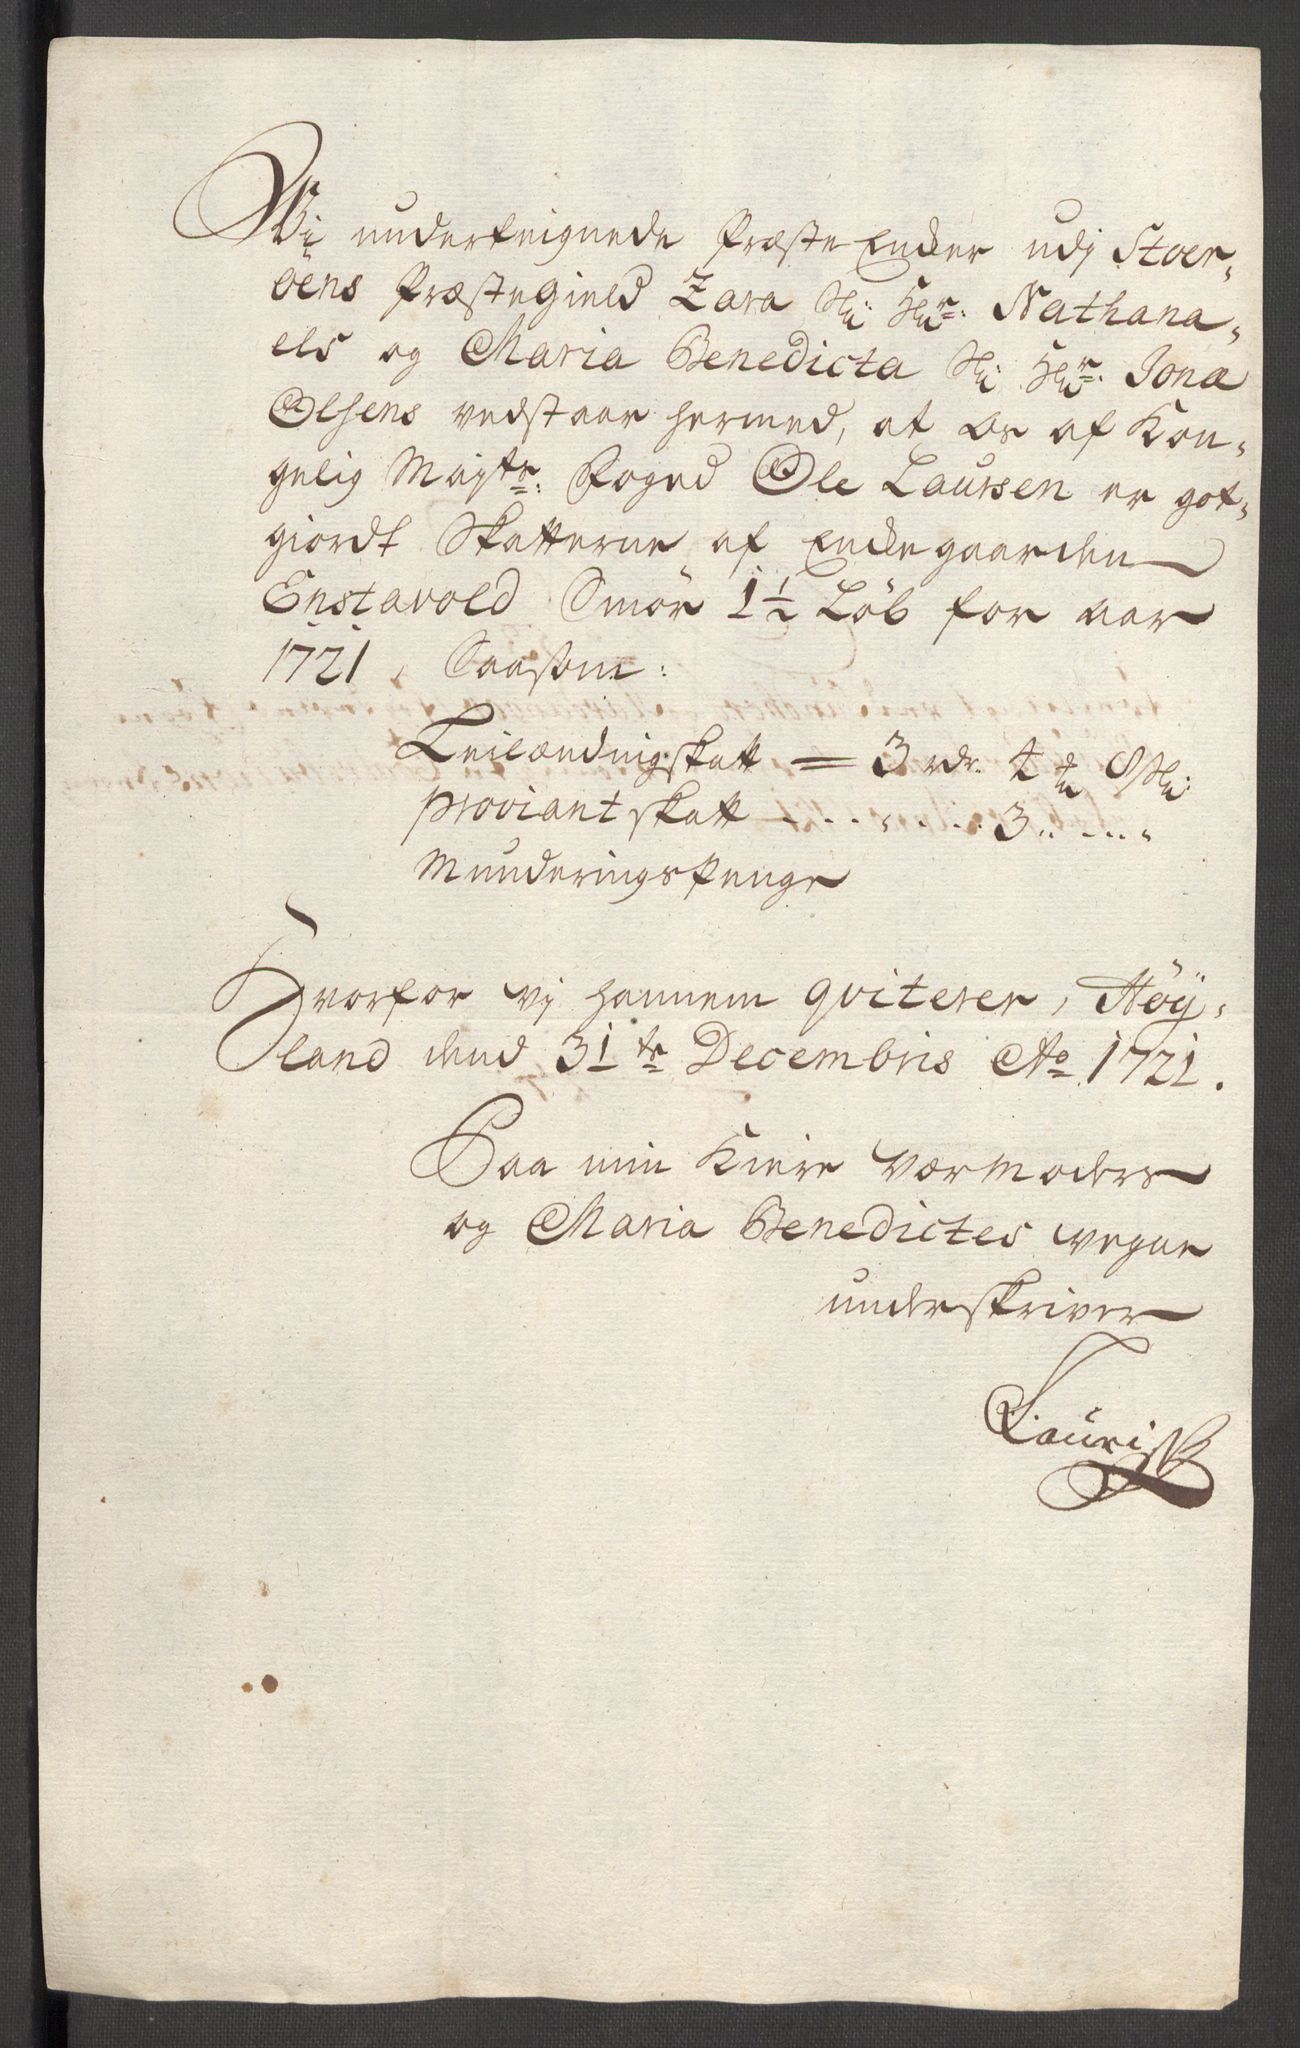 Wi underteignede Præste Encker udj Stoer-
öens Præstegield Zara Sl: Hr: Nathana-
els og Maria Benedicta Sl: Hr: Jona
Olsens vedstaar hermed, at Os af Kon-
gelig Mayts: Foged Ole Laursen er got-
giordt Skatterne af Enckegaarden
Enstavold Smör 1 1/2 Löb for aar
1721, Saasom:
Leilændingskatt = 3 rdr.
Proviant skatt - - - - - - 3 -- - - -
Munderingspenge
Hvorfor vj hannem qviterer, Höÿ-
land dend 31te Decembris Ao 1721.
Paa min Kiere Værmoders
og Maria Benedictes vegne
underskriver